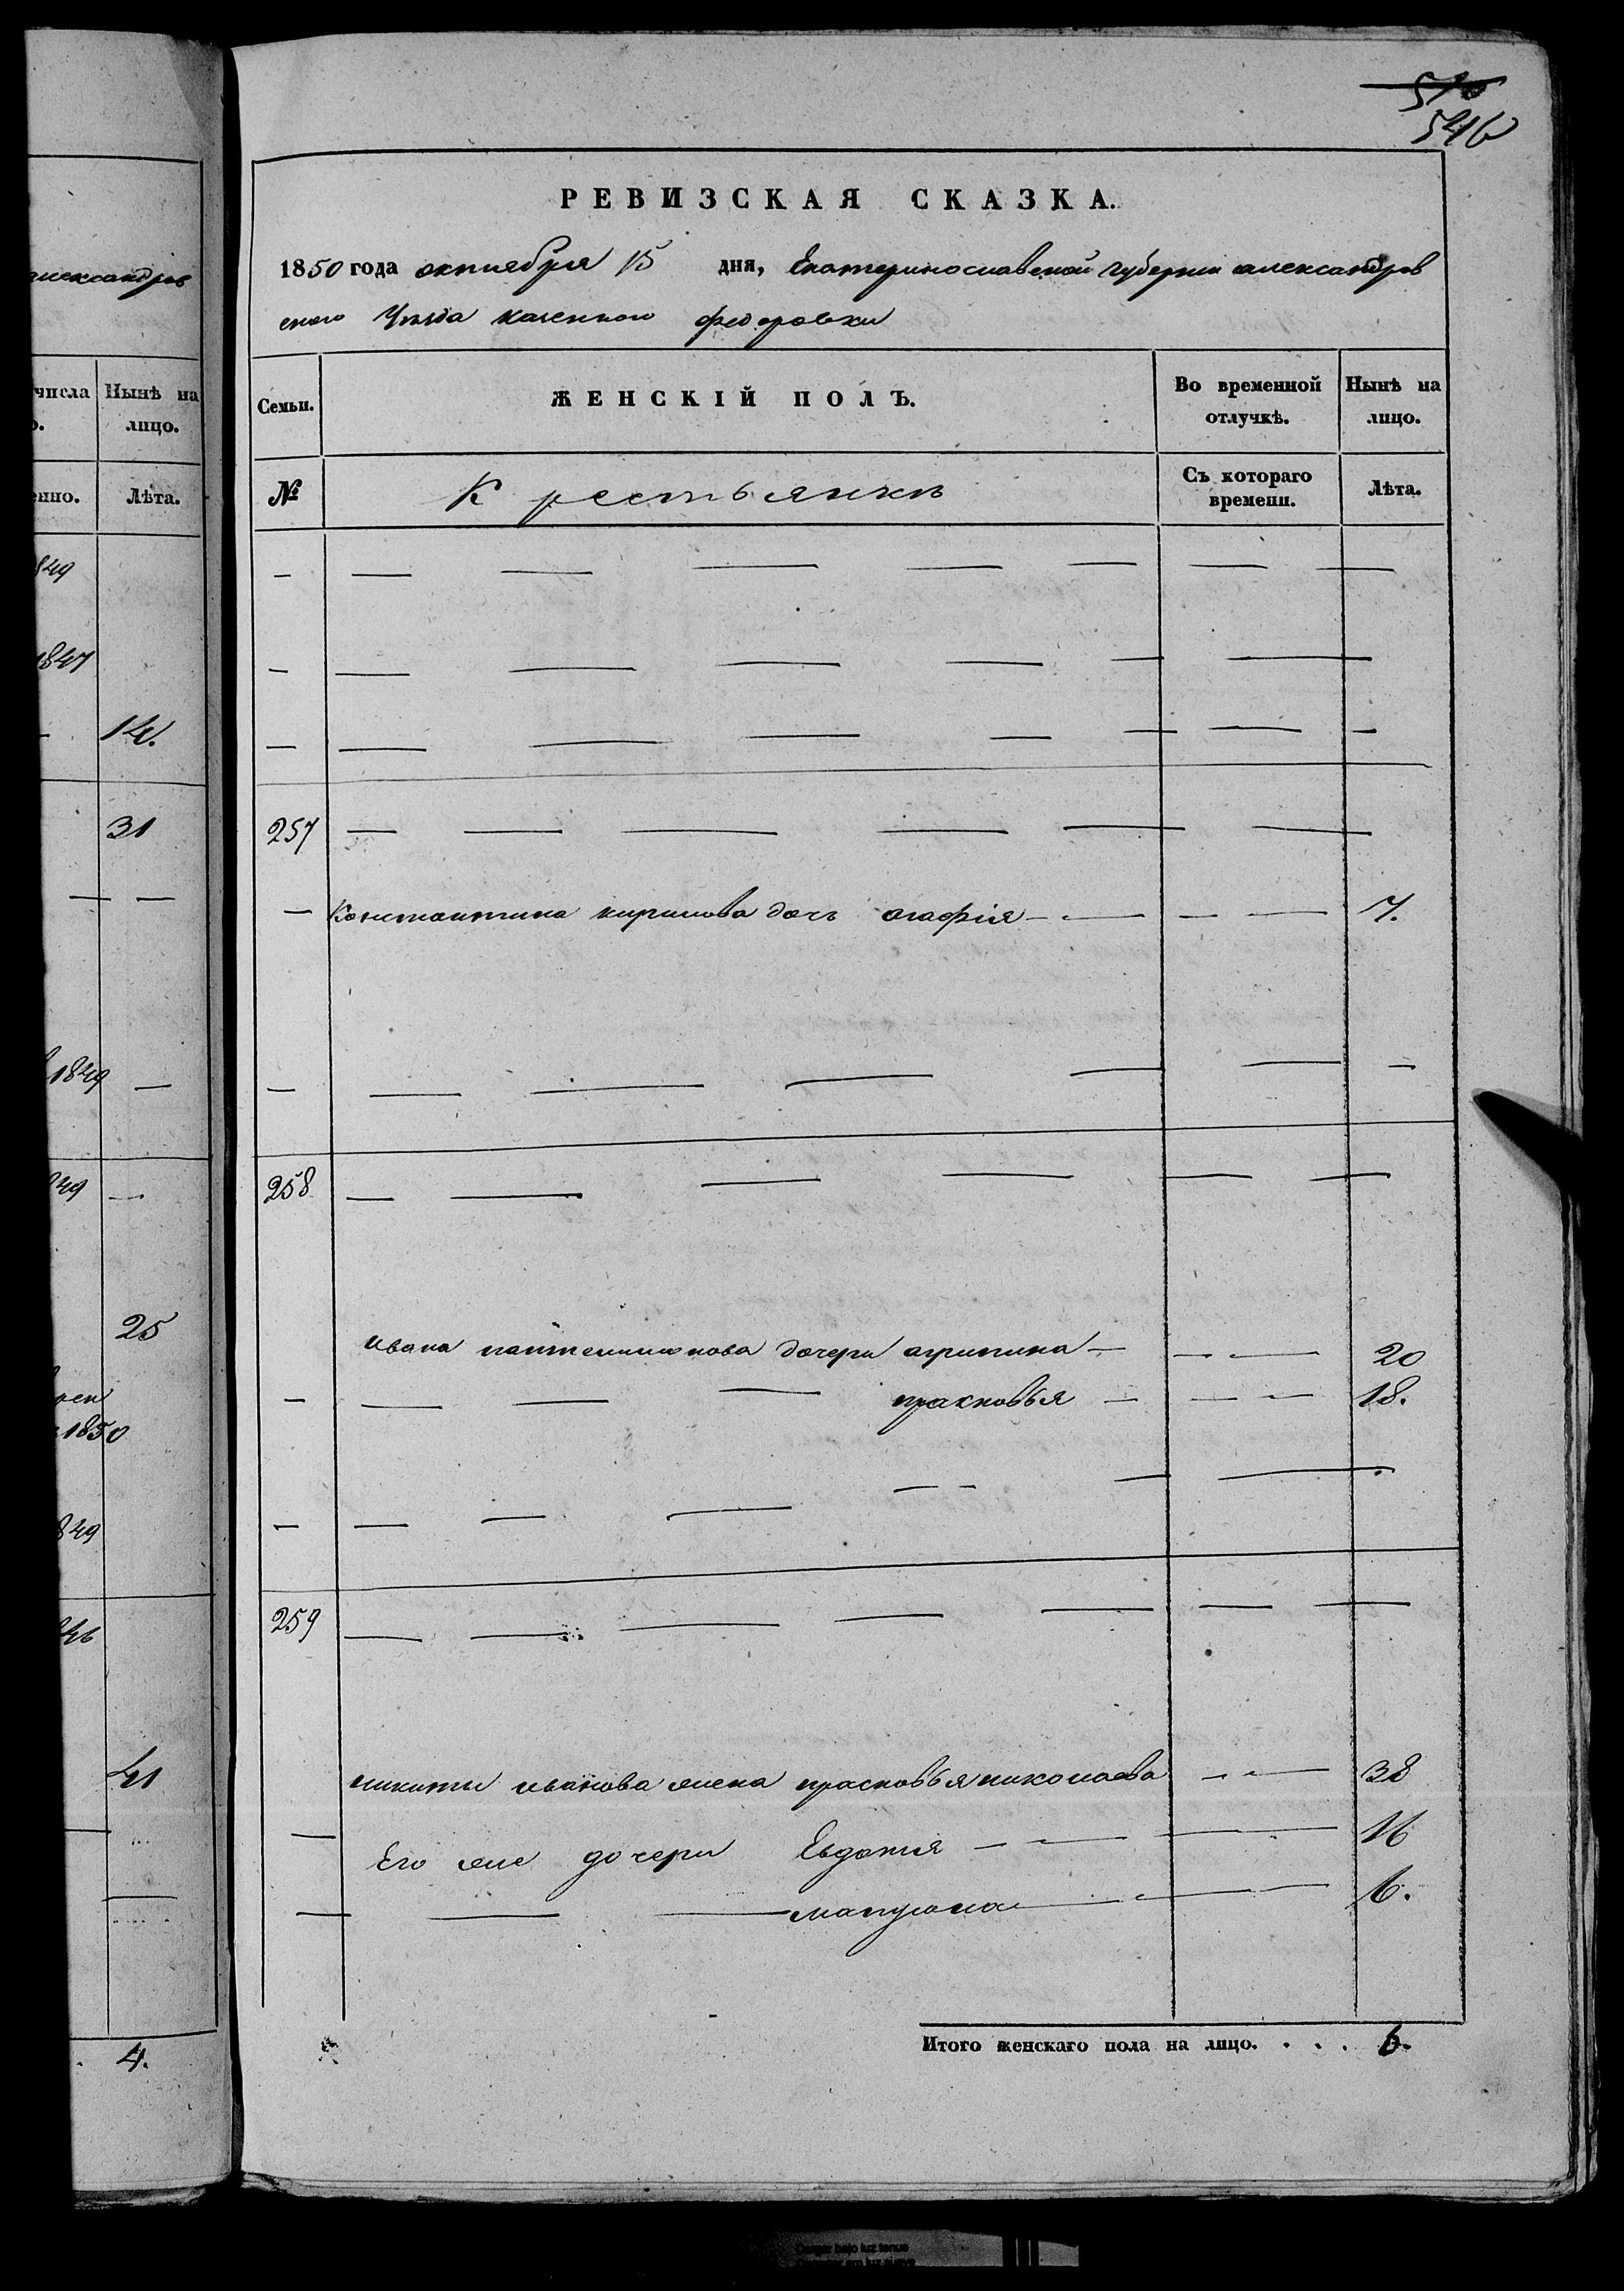 александров
числа Нынѣ на
о. лицо.
енно. Лѣта.
849
1847
14.
31
1849
849
25
1850
849
846
41
4.
510
546
РЕВИЗСКАЯ СКАЗКА.
1850 года октября 15 дня, Екатеринославской губерніи александров
ского Уезда казенного федоровки
Семьи. ЖЕНСКІЙ ПОЛЪ. Во временной отлучкѣ. Нынѣ на лицо.
№ Крестьянки Съ котораго времени. Лѣта.
— — — — — — — —
— — — — — — —
— — — — — — — —
257 — — — — — —
— Константина кирилова дочь агафія — — — — 7.
— — — — — — —
258 — — — — — —
Ивана дочери агрипина — — — 20
— — — — прасковья — — — 18.
— — — — — — — —
259 — — — — — — —
никиты иванова жена прасковья николаева — — 38
— Его же дочери Евдокия — — — 16
— — — — — — 6.
Итого женскаго пола на лицо. . . . 6.